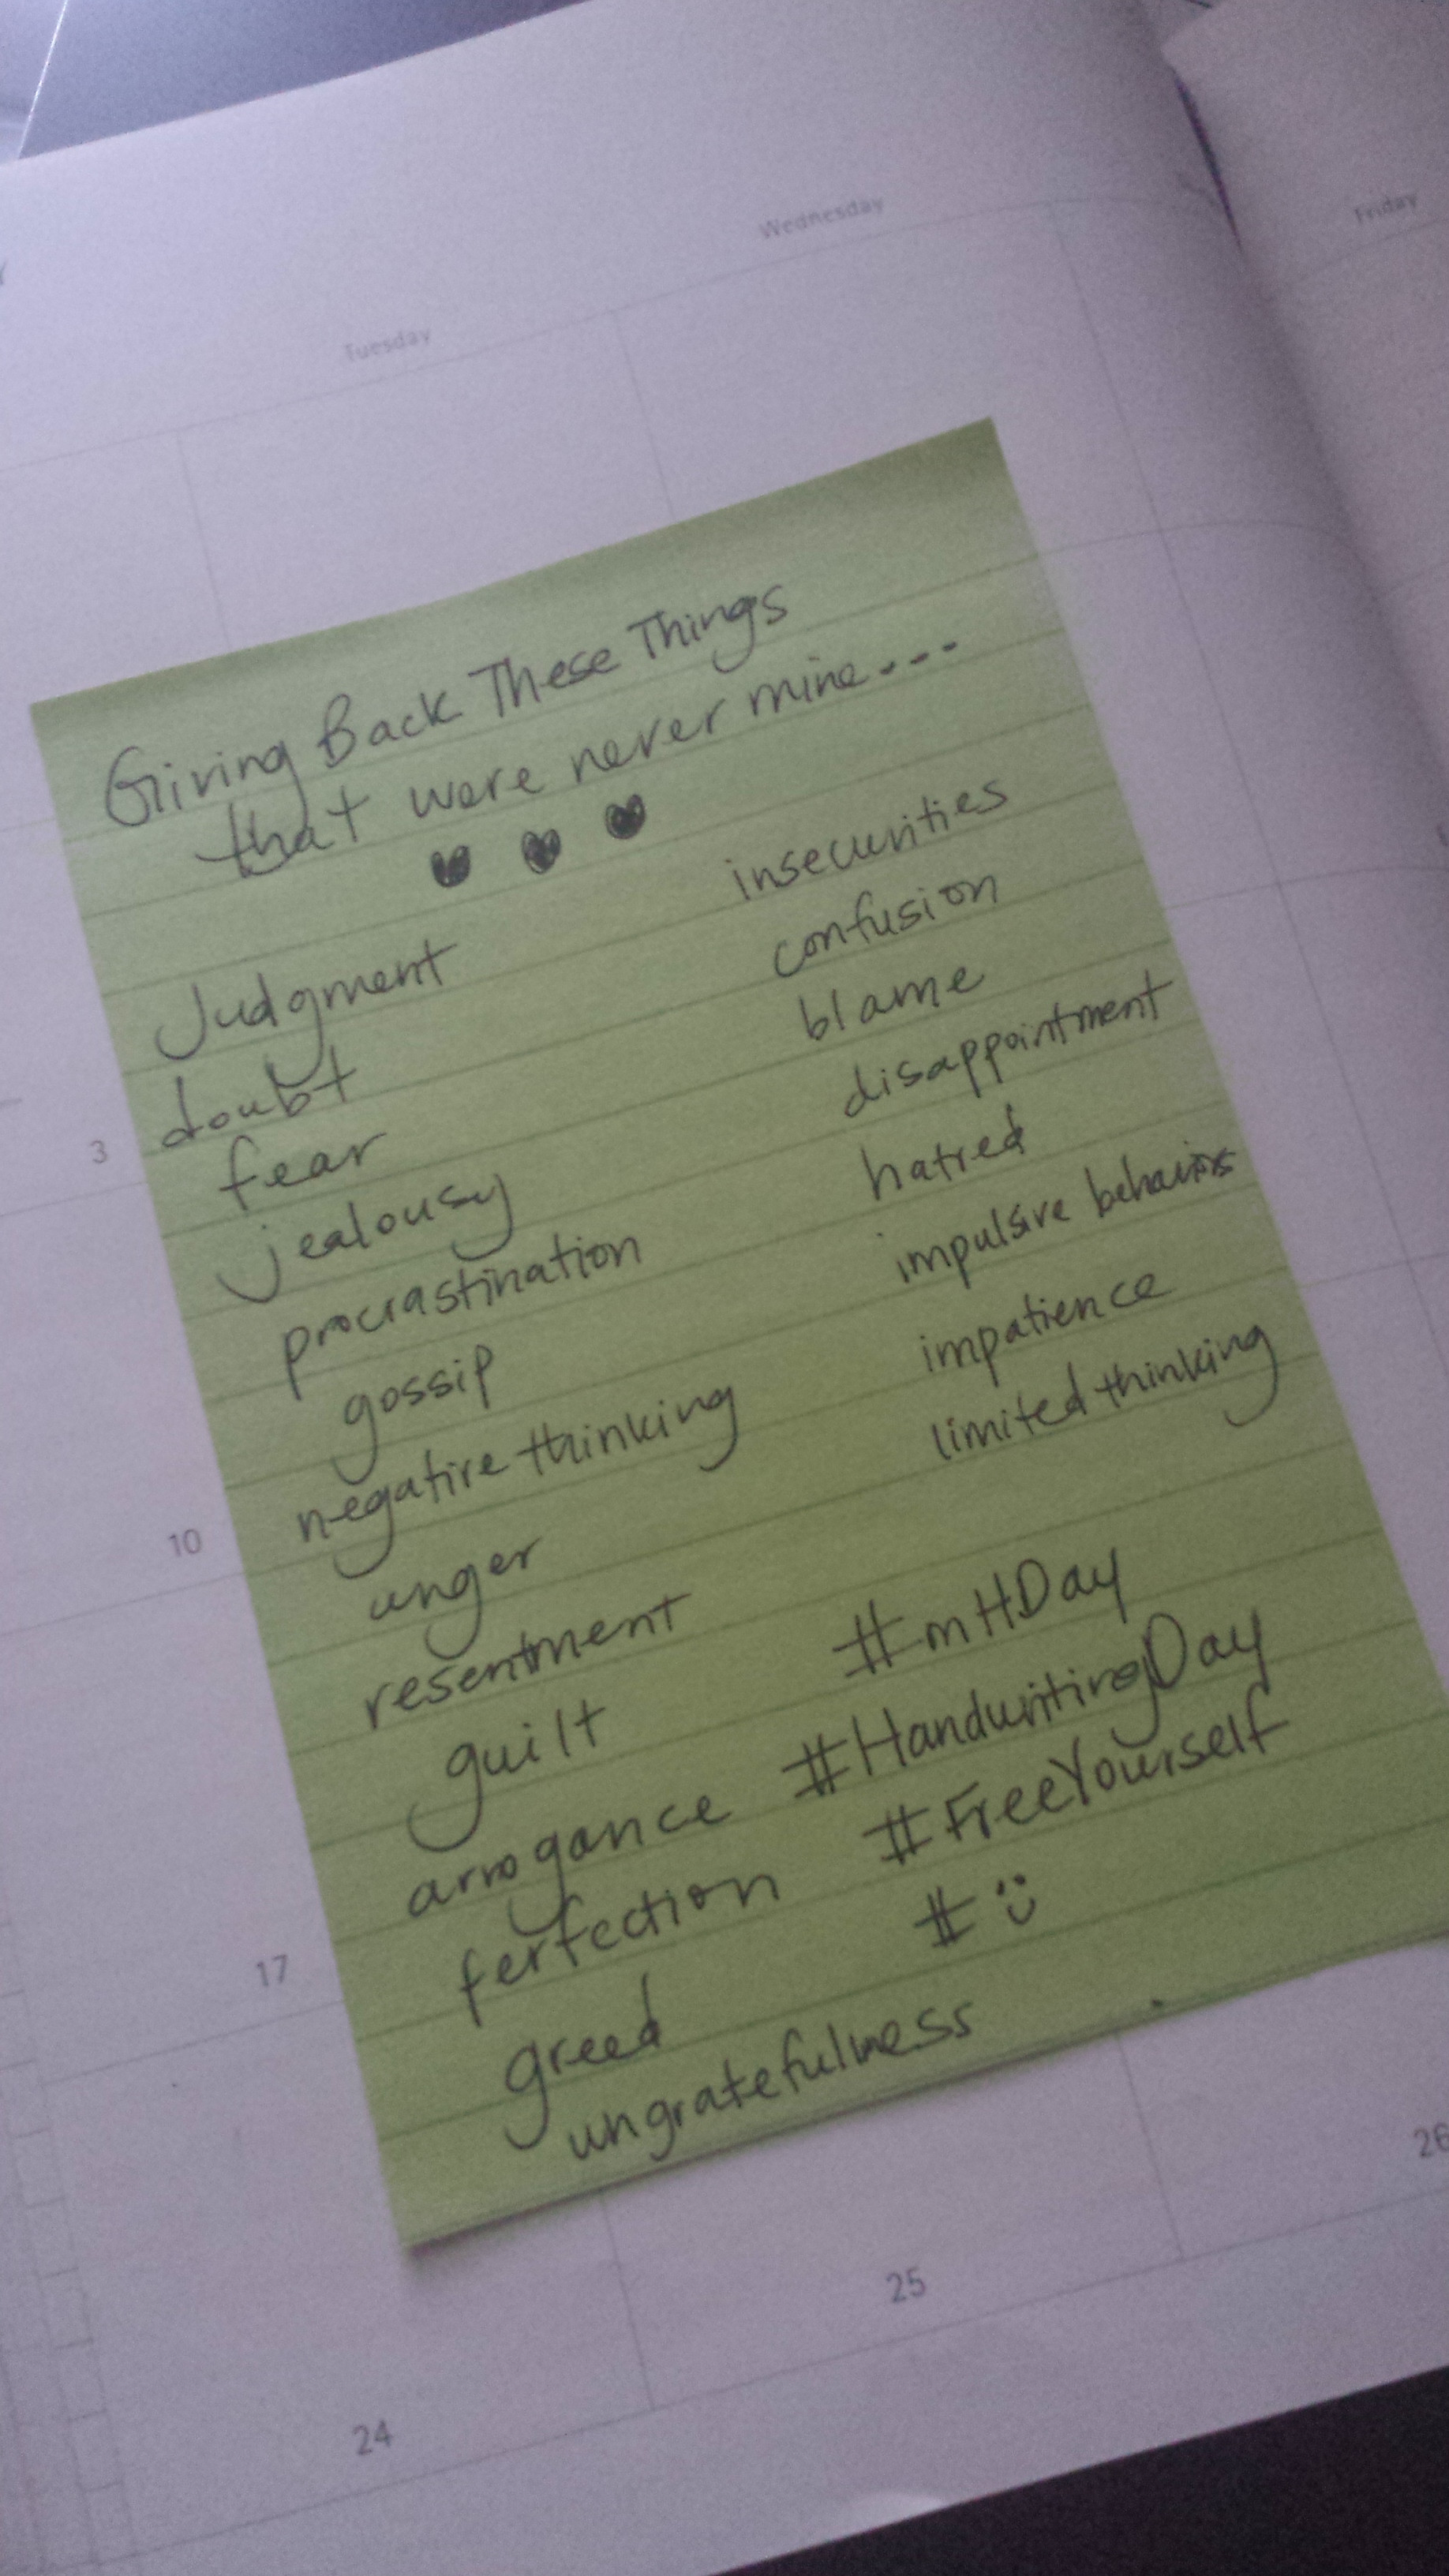 Wednesday
Friday
Tuesday
Giving Back These Things
that were never mine...
Judgment
doubt
fear
jealousy
procrastination
gossip
negative thinking
anger
resentment
guilt
arrogance
perfection
greed
ungratefulness
insecurities
confusion
blame
disappointment
hatred
impulsive behaviors
impatience
limited thinking
#mHDay
#HandwritingDay
#FreeYourself
#☺
3
10
17
24
25
26